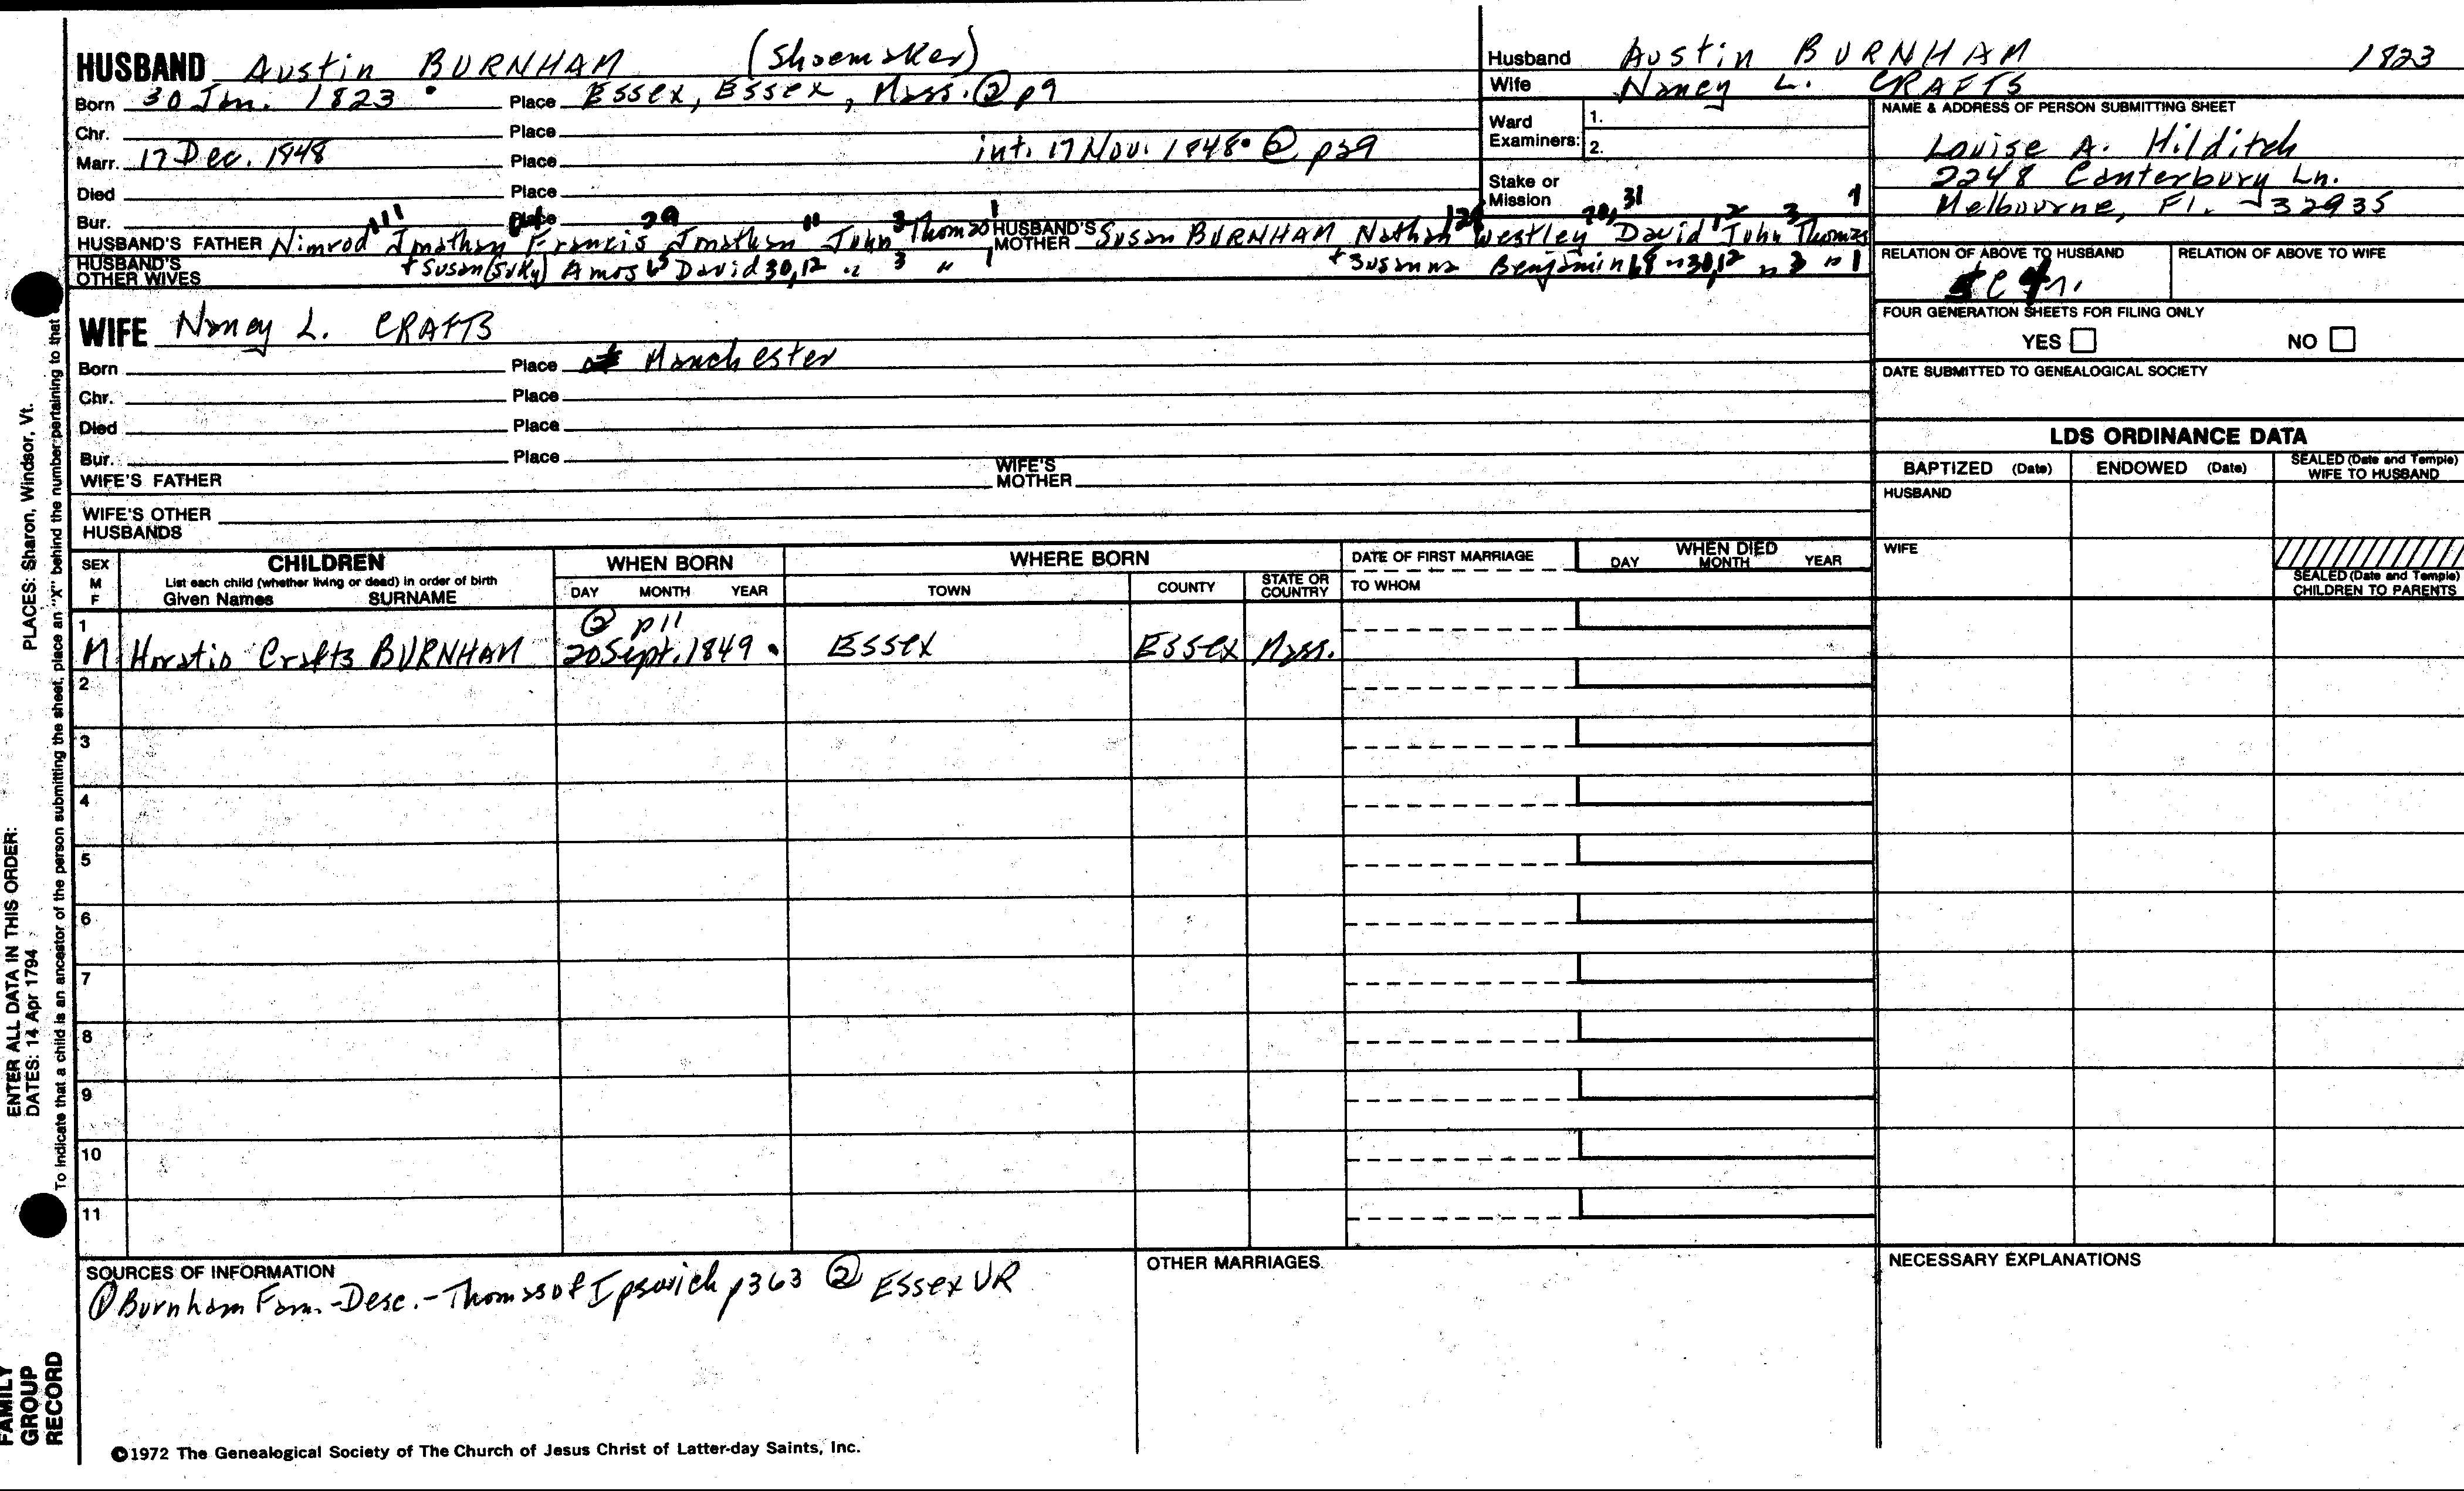 HUSBAND Austin BURNHAM (Shoemaker)
Born 30 Jan. 1823 Place Essex, Essex, Mass. ② p9
Chr. Place
Marr. 17 Dec. 1848 Place int. 17 Nov. 1848 ② p39
Died Place
Bur. Place
HUSBAND'S FATHER Nimrod Jonathan Francis Jonathan John Thomas HUSBAND'S MOTHER Susan BURNHAM Nathan Westley David John Thomas
HUSBAND'S OTHER WIVES + Susan (Suky) Amos David 30,12 " 3 " 1 + Susanna Benjamin 68 " 30,12 " 3 " 1
WIFE Nancy L. CRAFTS
Born Place of Manchester
Chr. Place
Died Place
Bur. Place
WIFE'S FATHER WIFE'S MOTHER
WIFE'S OTHER HUSBANDS
Husband Austin BURNHAM 1823
Wife Nancy L. CRAFTS
Ward Examiners: 1.
2.
Stake or Mission
NAME & ADDRESS OF PERSON SUBMITTING SHEET
Louise A. Hilditch
2248 Canterbury Ln.
Melbourne, Fl. 32935
RELATION OF ABOVE TO HUSBAND RELATION OF ABOVE TO WIFE
FOUR GENERATION SHEETS FOR FILING ONLY
YES NO
DATE SUBMITTED TO GENEALOGICAL SOCIETY
LDS ORDINANCE DATA
BAPTIZED (Date) ENDOWED (Date) SEALED (Date and Temple) WIFE TO HUSBAND
HUSBAND
WIFE
SEALED (Date and Temple) CHILDREN TO PARENTS
SEX M F CHILDREN WHEN BORN WHERE BORN DATE OF FIRST MARRIAGE WHEN DIED
List each child (whether living or dead) in order of birth
Given Names SURNAME DAY MONTH YEAR TOWN COUNTY STATE OR COUNTRY TO WHOM DAY MONTH YEAR
1 ② p11
M Horatio Crafts BURNHAM 20 Sept. 1849 Essex Essex Mass.
2
3
4
5
6
7
8
9
10
11
SOURCES OF INFORMATION
① Burnham Fam.-Desc.-Thomas of Ipswich p363 ② Essex VR
OTHER MARRIAGES
NECESSARY EXPLANATIONS
©1972 The Genealogical Society of The Church of Jesus Christ of Latter-day Saints, Inc.
FAMILY GROUP RECORD
ENTER ALL DATA IN THIS ORDER:
DATES: 14 Apr 1794
PLACES: Sharon, Windsor, Vt.
To indicate that a child is an ancestor of the person submitting the sheet, place an "X" behind the number pertaining to that